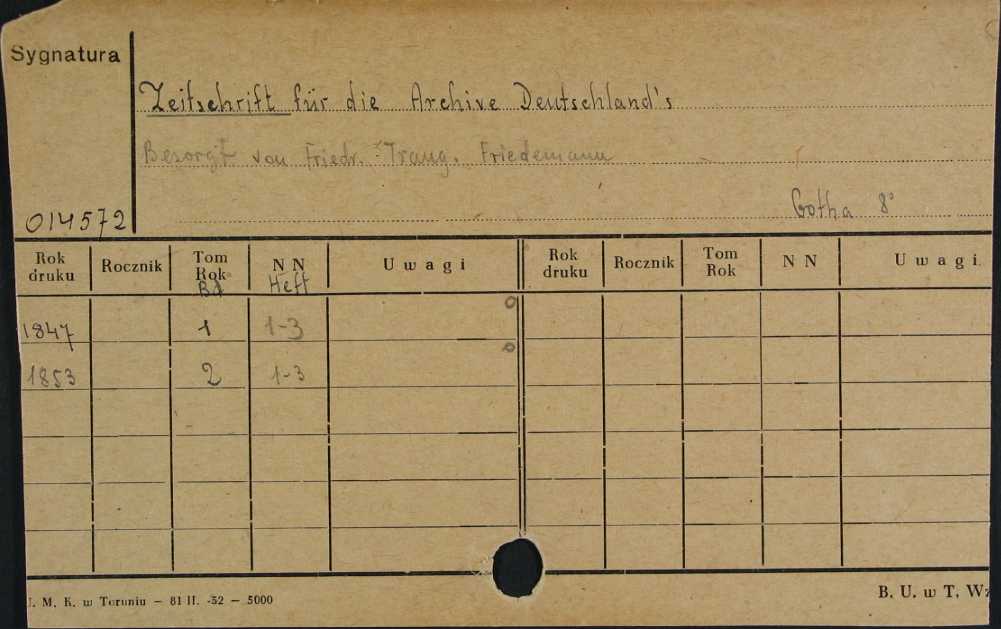 Sygnatura
Zeitschrift für die Archive Deutschland's
Besorgt von Friedr. Traug. Friedemann
Gotha 8°
014572
Rok druku Rocznik Tom Rok Bd N N Heft Uwagi Rok druku Rocznik Tom Rok N N Uwagi
1847 1 1-3
1853 2 1-3
. M. K. w Toruniu – 81 II. -52 – 5000
B. U. w T. W